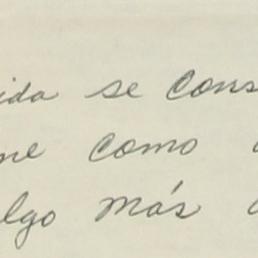 ida se cons
ne como
algo más